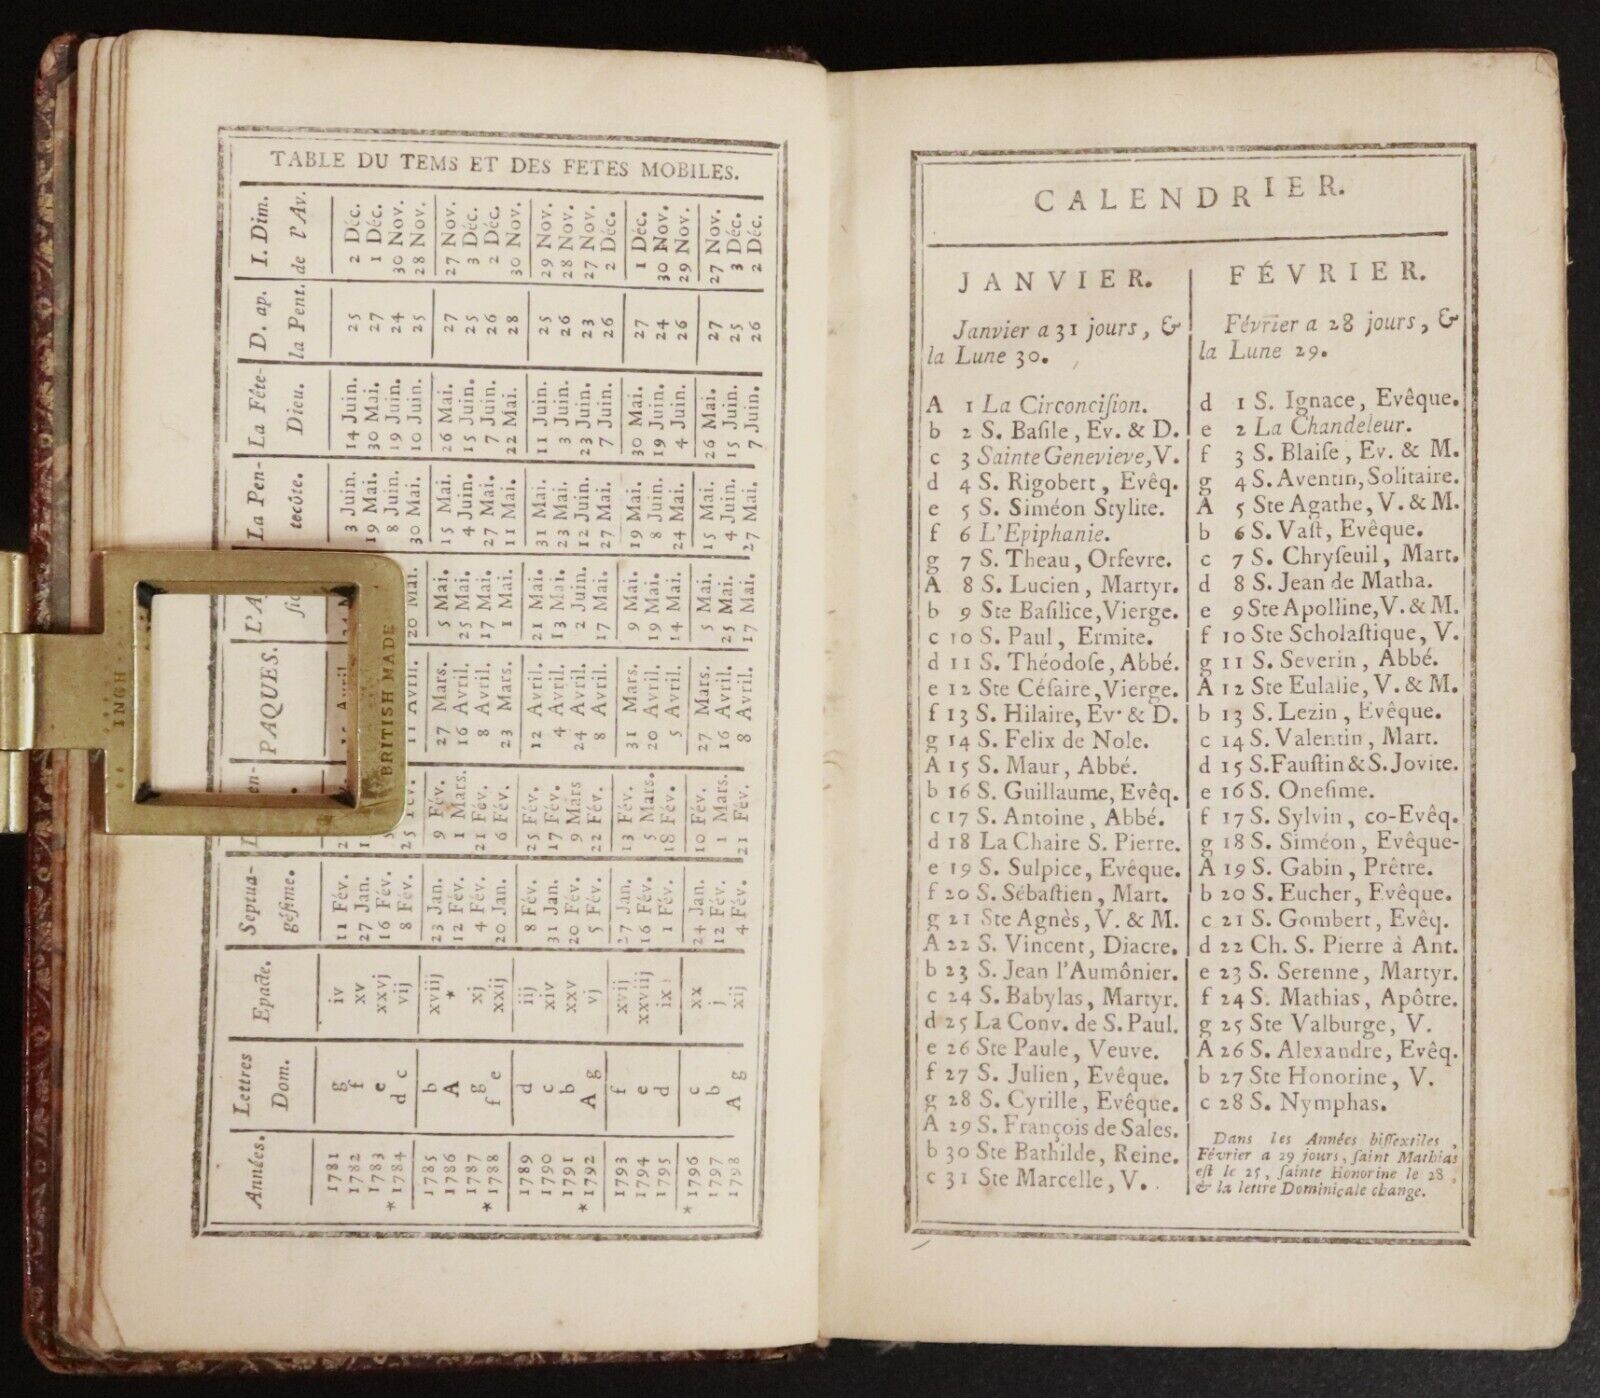 TABLE DU TEMS ET DES FETES MOBILES.
Années. Lettres Dom. Epacte. Septuagésime. PAQUES. La Pentecôte. La Fête-Dieu. D. ap. la Pent. I. Dim. de l'Av.
1781 g iv 11 Fév. 3 Juin. 14 Juin. 25 2 Déc.
1782 f xv 27 Jan. 19 Mai. 30 Mai. 27 1 Déc.
1783 e xxvj 16 Fév. 8 Juin. 19 Juin. 24 30 Nov.
* 1784 d c vij 8 Fév. 25 Fév. 11 Avril. 20 Mai. 30 Mai. 10 Juin. 25 28 Nov.
1785 b xviij 23 Jan. 9 Fév. 27 Mars. 5 Mai. 15 Mai. 26 Mai. 27 27 Nov.
1786 A * 12 Fév. 1 Mars. 16 Avril. 25 Mai. 4 Juin. 15 Juin. 25 3 Déc.
1787 g xj 4 Fév. 21 Fév. 8 Avril. 17 Mai. 27 Mai. 7 Juin. 26 2 Déc.
* 1788 f e xxij 20 Jan. 6 Fév. 23 Mars. 1 Mai. 11 Mai. 22 Mai. 28 30 Nov.
1789 d iij 8 Fév. 25 Fév. 12 Avril. 21 Mai. 31 Mai. 11 Juin. 25 29 Nov.
1790 c xiv 31 Jan. 17 Fév. 4 Avril. 13 Mai. 23 Mai. 3 Juin. 26 28 Nov.
1791 b xxv 20 Fév. 9 Mars 24 Avril. 2 Jun. 12 Juin. 23 Juin. 23 27 Nov.
* 1792 A g vj 5 Fév. 22 Fév. 8 Avril. 17 Mai. 27 Mai. 7 Juin. 26 2 Déc.
1793 f xvij 27 Jan. 13 Fév. 31 Mars. 9 Mai. 19 Mai. 30 Mai. 27 1 Déc.
1794 e xxviij 16 Fév. 5 Mars. 20 Avril. 19 Mai. 8 Juin. 19 Juin. 24 30 Nov.
1795 d ix 1 Fév. 18 Fév. 5 Avril. 14 Mai. 24 Mai. 4 Juin. 26 29 Nov.
* 1796 c xx 24 Jan. 10 Fév. 27 Mars. 5 Mai. 15 Mai. 26 Mai. 27 27 Nov.
1797 b j 12 Fév. 1 Mars. 16 Avril. 25 Mai. 4 Juin. 15 Juin. 25 3 Déc.
1798 A g xij 4 Fév. 21 Fév. 8 Avril. 17 Mai. 27 Mai. 7 Juin. 26 2 Déc.
BRITISH MADE
CALENDRIER.
JANVIER.
Janvier a 31 jours, &
la Lune 30.
A 1 La Circoncision.
b 2 S. Basile, Ev. & D.
c 3 Sainte Genevieve, V.
d 4 S. Rigobert, Evêq.
e 5 S. Siméon Stylite.
f 6 L'Epiphanie.
g 7 S. Theau, Orfevre.
A 8 S. Lucien, Martyr.
b 9 Ste Basilice, Vierge.
c 10 S. Paul, Ermite.
d 11 S. Théodose, Abbé.
e 12 Ste Césaire, Vierge.
f 13 S. Hilaire, Ev. & D.
g 14 S. Felix de Nole.
A 15 S. Maur, Abbé.
b 16 S. Guillaume, Evêq.
c 17 S. Antoine, Abbé.
d 18 La Chaire S. Pierre.
e 19 S. Sulpice, Evêque.
f 20 S. Sébastien, Mart.
g 21 Ste Agnès, V. & M.
A 22 S. Vincent, Diacre.
b 23 S. Jean l'Aumônier.
c 24 S. Babylas, Martyr.
d 25 La Conv. de S. Paul.
e 26 Ste Paule, Veuve.
f 27 S. Julien, Evêque.
g 28 S. Cyrille, Evêque.
A 29 S. François de Sales.
b 30 Ste Bathilde, Reine.
c 31 Ste Marcelle, V.
FÉVRIER.
Février a 28 jours, &
la Lune 29.
d 1 S. Ignace, Evêque.
e 2 La Chandeleur.
f 3 S. Blaise, Ev. & M.
g 4 S. Aventin, Solitaire.
A 5 Ste Agathe, V. & M.
b 6 S. Vast, Evêque.
c 7 S. Chryseuil, Mart.
d 8 S. Jean de Matha.
e 9 Ste Apolline, V. & M.
f 10 Ste Scholastique, V.
g 11 S. Severin, Abbé.
A 12 Ste Eulalie, V. & M.
b 13 S. Lezin, Evêque.
c 14 S. Valentin, Mart.
d 15 S. Faustin & S. Jovite.
e 16 S. Onesime.
f 17 S. Sylvin, co-Evêq.
g 18 S. Siméon, Evêque-
A 19 S. Gabin, Prêtre.
b 20 S. Eucher, Evêque.
c 21 S. Gombert, Evêq.
d 22 Ch. S. Pierre à Ant.
e 23 S. Serenne, Martyr.
f 24 S. Mathias, Apôtre.
g 25 Ste Valburge, V.
A 26 S. Alexandre, Evêq.
b 27 Ste Honorine, V.
c 28 S. Nymphas.
Dans les Années bissextiles,
Février a 29 jours, saint Mathias
est le 25, sainte Honorine le 28,
& la lettre Dominicale change.